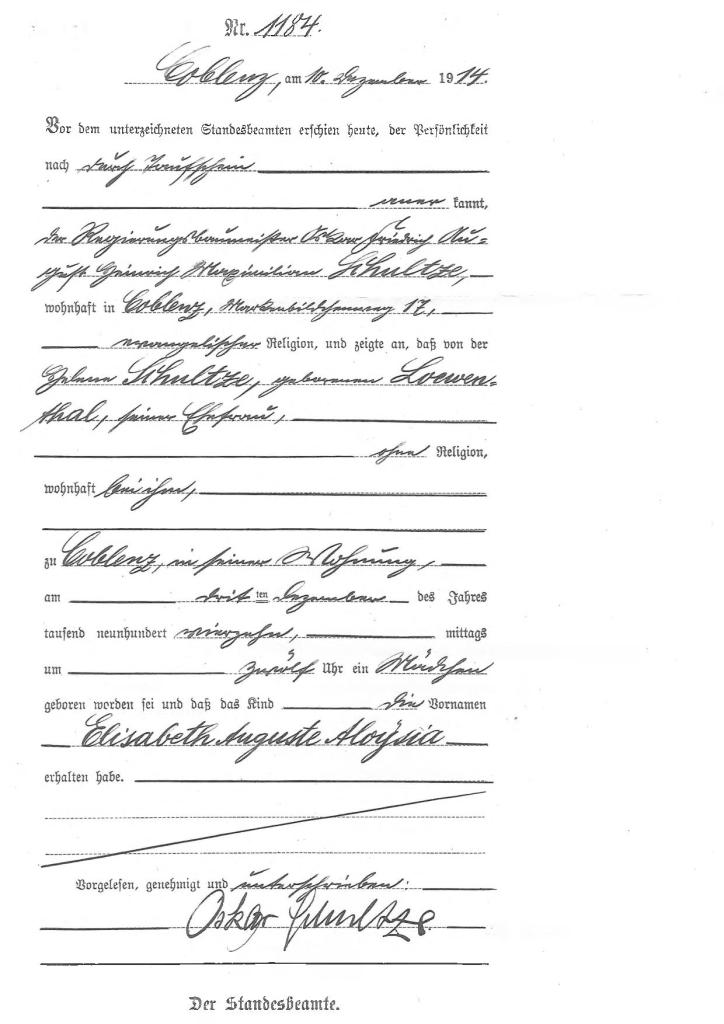 Nr. 1184.
Coblenz, am 10. Dezember 1914.
Vor dem unterzeichneten Standesbeamten erschien heute, der Persönlichkeit
nach durch Taufschein
aner kannt,
der Regierungsbaumeister Oskar Friedrich Au-
gust Heinrich Maximilian Schultze,
wohnhaft in Coblenz, Markenbildchenweg 17,
evangelischer Religion, und zeigte an, daß von der
Helene Schultze, geborenen Loewen-
thal, seiner Ehefrau,
ohne Religion,
wohnhaft bei ihm,
zu Coblenz, in seiner Wohnung,
am drit ten Dezember des Jahres
tausend neunhundert vierzehn, mittags
um zwölf Uhr ein Mädchen
geboren worden sei und daß das Kind die Vornamen
Elisabeth Auguste Aloÿsia
erhalten habe.
Vorgelesen, genehmigt und unterschrieben:
Oskar Schultze
Der Standesbeamte.